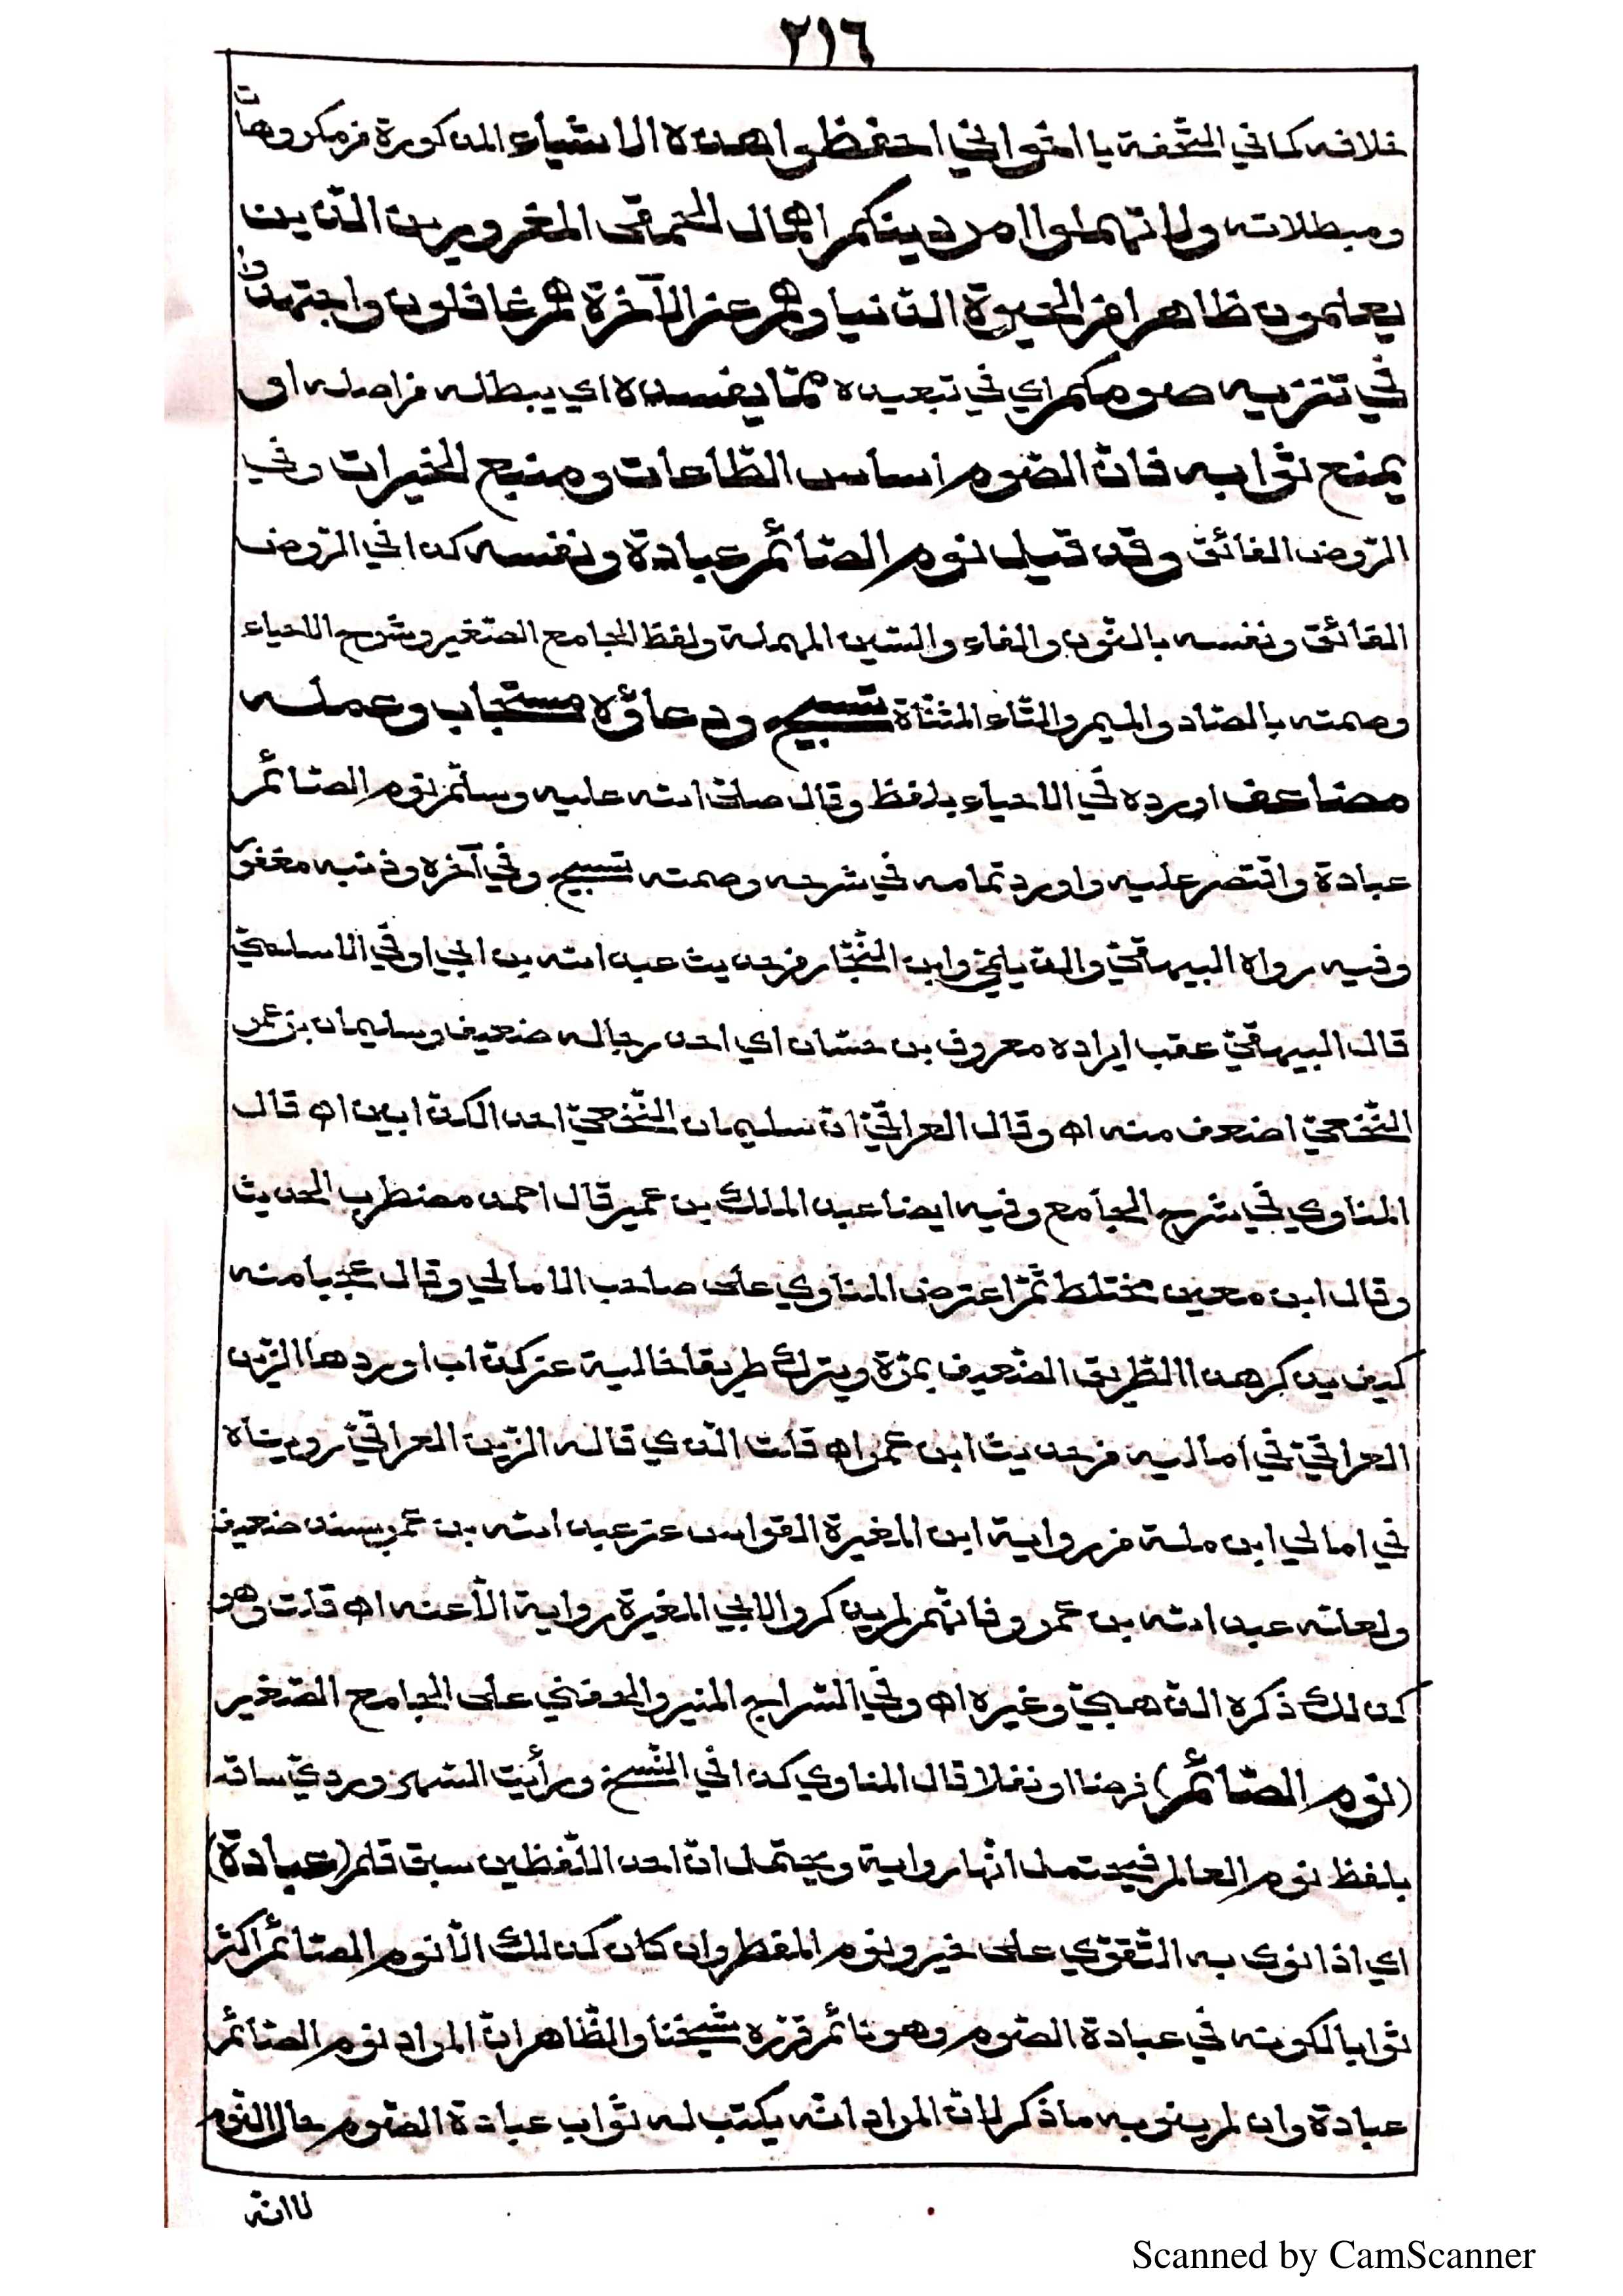 ٢١٦
خلافه كما في التحفة يا اخواني احفظوا هذه الاشياء المذكورة من مكروهات
ومبطلاته ولا تهملوا امر دينكم اهمال الحمقى المغرورين الذين
يعلمون ظاهرا من الحيوة الدنيا وهم عن الآخرة هم غافلون واجتهدوا
في تنزيه صومكم اي في تبعيده عمّا يفسده اي يبطله من اصله او
يمنع ثوابه فانّ الصّوم اساس الطّاعات ومنبع الخيرات وفي
الرّوض الفائق وقد قيل نوم الصّائم عبادة ونفسه كذا في الرّوض
الفائق ونفسه بالنّون والفاء والسّين المهملة ولفظ الجامع الصّغير وشرح الاحياء
وصمته بالصّاد والميم والتّاء المثنّاة تسبيح ودعاؤه مستجاب وعمله
مضاعف اورده في الاحياء بلفظ وقال صلى الله عليه وسلّم نوم الصّائم
عبادة واقتصر عليه واورد تمامه في شرحه وصمته تسبيح وفي آخره وذنبه مغفور
وفيه رواه البيهقيّ والدّيلميّ وابن النّجّار من حديث عبد الله بن ابي اوفى الاسلميّ
قال البيهقيّ عقب ايراده معروف بن حسّان اي احد رجاله ضعيف وسليمان بن عمر
النّخعيّ اضعف منه اه وقال العراقيّ انّ سليمان النّخعيّ احد الكذّابين اه قال
المناوي في شرح الجامع وفيه ايضا عبد الملك بن عمير قال احمد مضطرب الحديث
وقال ابن معين مختلط ثمّ اعترض المناوي على صاحب الامالي وقال عجبا منه
كيف يذكر هذا الطّريق الضّعيف بمرّة ويترك طريقا خالية عن كذّاب اوردها الزّين
العراقيّ في اماليه من حديث ابن عمر اه قلت الّذي قاله الزّين العراقيّ رويناه
في امالي ابن ملة من رواية ابن المغيرة القواس عن عبد الله بن عمر بسند ضعيف
ولعلّه عبد الله بن عمرو فانّهم لم يذكروا لابي المغيرة رواية الّا عنه اه قلت وهو
كذلك ذكره الذّهبيّ وغيره اه وفي السّراج المنير والحفني على الجامع الصّغير
(نوم الصّائم) فرضا او نفلا قال المناوي كذا في النّسخ ورأيت السّهروردي ساقه
بلفظ نوم العالم فيحتمل انّها رواية ويحتمل انّ احد اللّفظين سبق قلم (عبادة)
اي اذا نوى به التّقوّي على خير ونوم المفطر وان كان كذلك الّا نوم الصّائم اكثر
ثوابا لكونه في عبادة الصّوم وهو نائم قرّره شيخنا والظّاهر انّ المراد نوم الصّائم
عبادة وان لم ينو به ما ذكر لانّ المراد انّه يكتب له ثواب عبادة الصّوم حال النّوم
لا انّه
Scanned by CamScanner